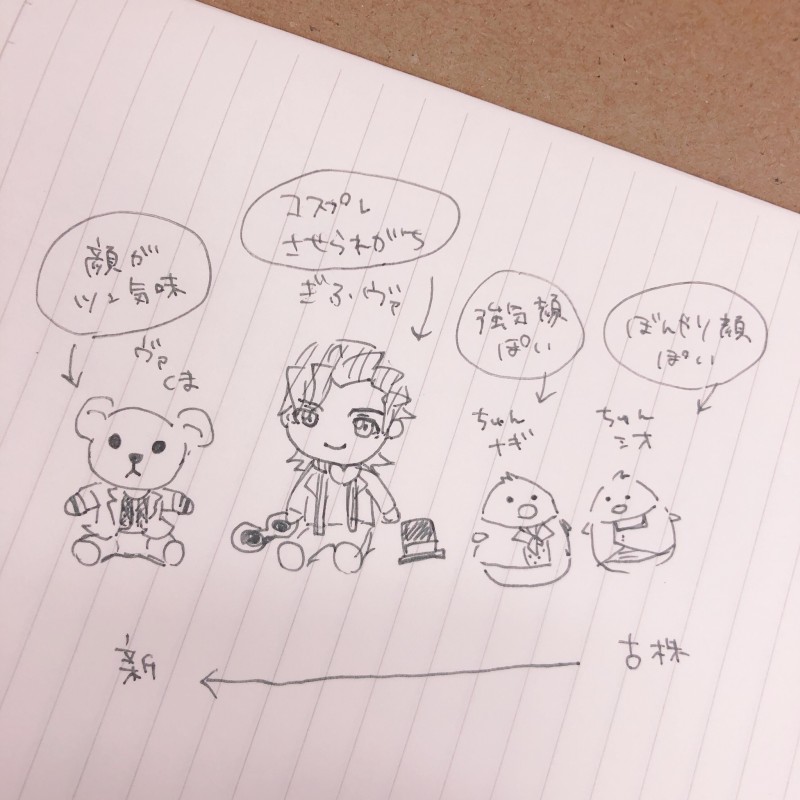 顔が
ツン気味
ヴァ
くま
コスプレ
させられがち
ぎふヴァ
強気顔
ぽい
ちゅん
ナギ
ぼんやり顔
ぽい
ちゅん
シオ
新
古株